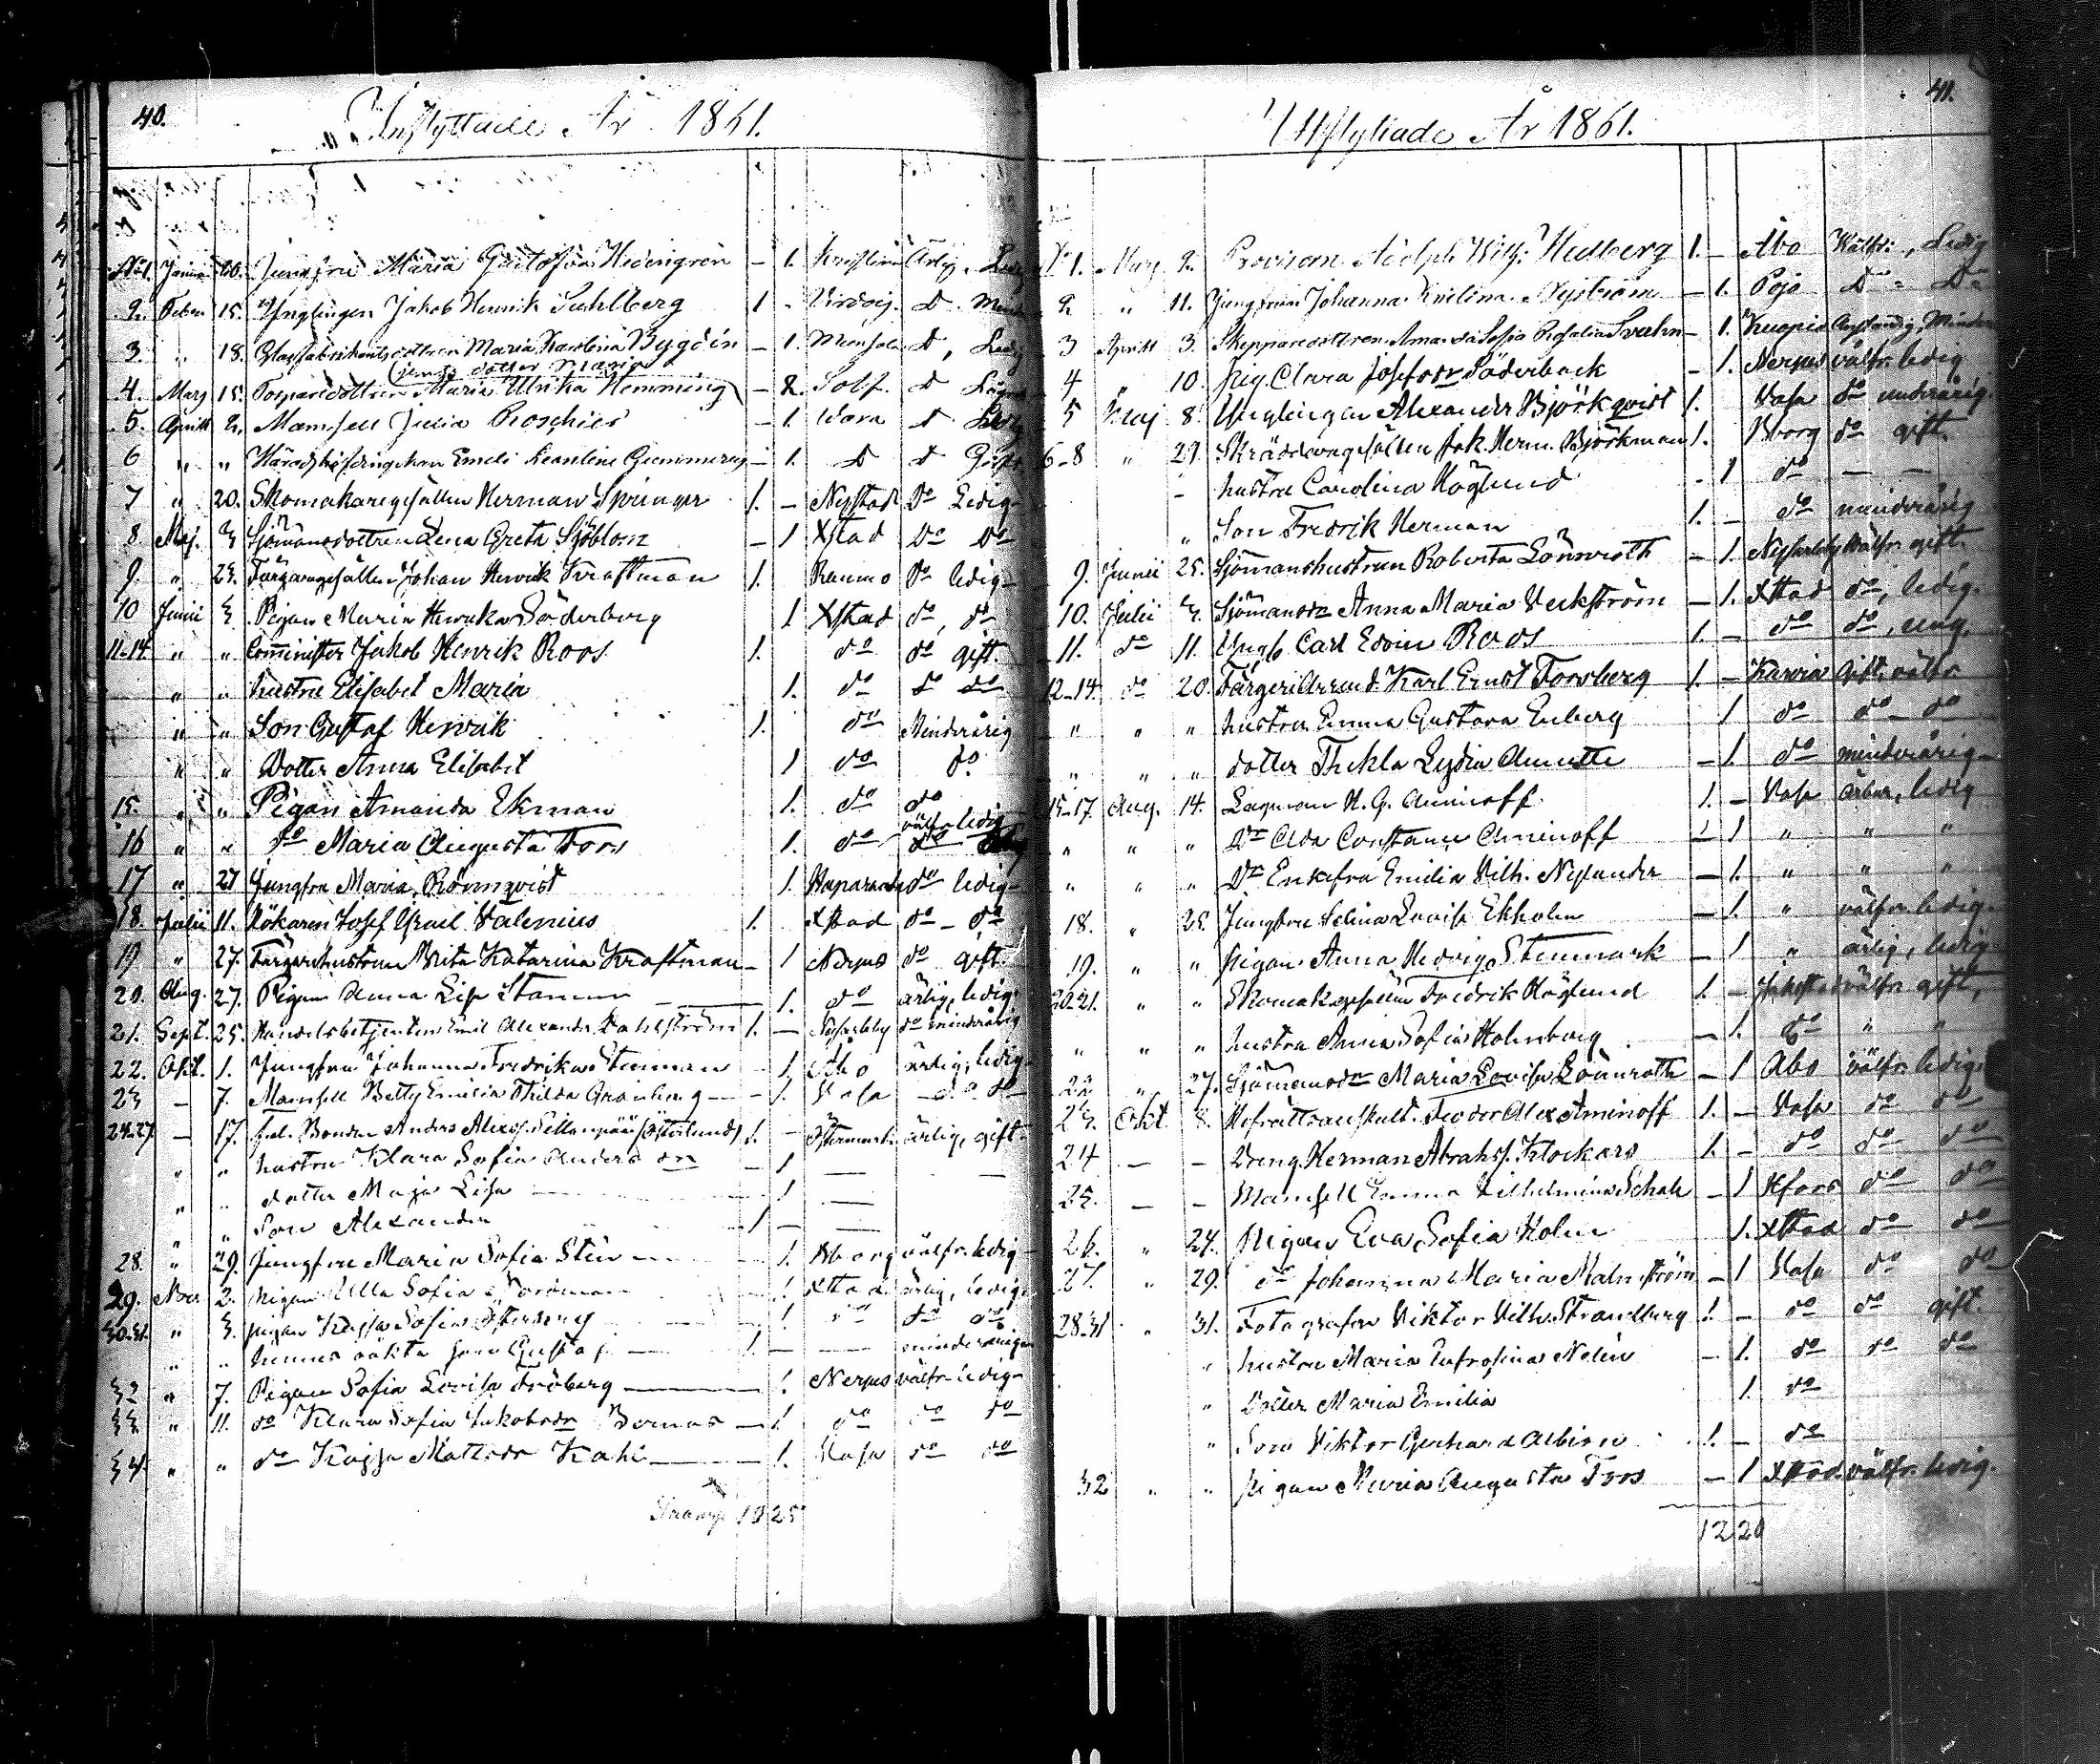 40.
Inflyttade År 1861.
No 1. Januari 20. Jungfru Maria Gustafva Hedengren — 1. Kristine Ärlig, Ledig
2. Febru 15. Ynglingen Jakob Henrik Suhlberg 1 - Virdois. Do Minder
3. " 18. Glasfabrikantsdottren Maria Karolina Bygdén — 1. Do, Ledig
jemte dotter Maria
4. Mars 15. Torparedottren Maria Ulrika Hemming — 2. Solf. Do
5. Aprill 2. Mamsell Julia Roschier — 1. Wöra Do Ledig
6 " " Häradshöfdingskan Emeli Karolina Gummerus — 1. Do Do Gift
7 " 20. Skomakaregesällen Herman Springer 1. — Nystad Do Ledig
8. Maj. 3 Sjömansdottren Lena Greta Sjöblom — 1 Xstad Do Do
9. " 23. Färgaregesällen Johan Henrik Kraftman 1. Raumo Do ledig
10 Junii 3. Pigan Maria Henrika Söderberg 1 Xstad do, do
11-14 " " Comminister Jakob Henrik Roos 1. do do gift.
" " hustru Elisabet Maria 1. do do do
" " Son Gustaf Henrik 1. do Minderårig
" " Dotter Anna Elisabet 1 do do
15. " " Pigan Amanda Ekman 1. do do
välfr. ledig
16 " " do Maria Augusta Fors 1. do do
17 " 27 Jungfru Maria Rönnqvist 1. Haparanda do ledig
18. Julii 11. Hökaren Josef Israel Valenius 1. Xstad do — do
19 " 27. Färgarehustrun Brita Katarina Kraftman — 1 Nerpes do gift.
20. Aug. 27. Pigan Anna Lisa Stamm — 1. do ärlig, ledig
21. Sept. 25. Handelsbetjenten Emil Alexander Dahlström 1. — Nykarleby do minderårig
22. Okt. 1. Jungfru Johanna Fredrika Stenman — 1 Åbo ärlig, ledig
23 — 7. Mamsell Betty Emilia Thilda Grönberg — 1. Vasa do do
24-27 — 17. Bonden Anders Alexs. (Österlund) 1. — Östermark ärlig, gift.
" " hustru Klara Sofia Andersdr — 1 —
" " dotter Maja Lisa — 1 —
" " Son Alexander 1 —
28. " 29. Jungfru Maria Sofia Stén — 1. Bborg välfr. ledig
29. Nov. 2. Pigan Ulla Sofia Nordman 1. Xstad ärlig, ledig
30-31. " 3. pigan Kajsa Sofia Österberg 1 do do do
" " hennes oäkta son Gustaf — 1. — minderårigen
32 " 7. Pigan Sofia Lovisa Fröberg — 1. Nerpes välfr. ledig
33. " 11. do Klara Sofia Jakobsdr Bernas — 1. do do do
34. " " do Kajsa Mattsdr Kahi — 1. Vasa do do
Summa 10 25
41.
Utflyttade År 1861.
No 1. Mars 2. Provisorn Adolph Wilh: Hedberg 1. — Åbo Wälfr:, Ledig
2 " 11. Jungfrun Johanna Karolina Nyström — 1. Pojo Do Do
3 Aprill 3. Skepparedottren Amanda Sofia Rosalia Svahn — 1. Kuopio Minder
4 " 10. pig. Clara Josefsdr Söderback — 1. Nerpes välfr. ledig
5 Maj 8. Ynglingen Alexander Björkqvist 1. Vasa do minderårig.
6-8 " 29. Skräddaregesällen Jak. Herm. Björkman 1. Bborg do gift.
- hustru Carolina Höglund — 1 do — —
" Son Fredrik Herman 1. — do minderårig
9. Junii 25. Sjömanshustrun Roberta Lönnroth — 1. Nykarleby Wälfr. gift.
10. Julii 3. Sjömansdr Anna Maria Veckström — 1. Xstad do, ledig.
11. do 11. Yngl. Carl Edvin Roos 1. — do do, ung.
12-14 do 20. Färgeri Arrend. Karl Ernst Forsberg 1. — Karvia Gift, välfr
" " " hustru Emma Gustava Enberg 1 do do — do
" " " dotter Thekla Lydia Annette — 1 do minderårig
15-17. Aug. 14. Lagman H. G. Aminoff. 1. — Vasa ärbar, ledig
" " " Dr Ada Constance Aminoff — 1 " " "
" " " Dr Enkefru Emilia Vilh. Nylander — 1. " " "
18. " 25. Jungfru Selina Lovisa Ekholm — 1. " välfr. ledig.
19. " " pigan Anna Hedvig Stenmark — 1 " ärlig, ledig
20-21. " " Skomakgesällen Fredrik Höglund 1. — Jakstad välfr. gift,
" " " hustru Anna Sofia Holmberg — 1. do " "
22 " 27. Sjömansdr Maria Lovisa Lönnroth — 1 Åbo välfr. ledig.
23. Okt. 8. Hofrättsauskult. Feodor Alex Aminoff 1. — Vasa do do
24 — - Dreng. Herman Abrahs. Klockars 1. — do do do
25. — - Mamsell Emma Vilhelmina Schale — 1 Hfors do do
26. " 24. Pigan Eva Sofia Holm 1. Xstad do do
27. " 29. do Johanna Maria Malmström — 1 Vasa do do
28-31 " 31. Fotografen Viktor Vilh. Strandberg 1. — do do gift.
" hustru Maria Eufrosina Nelin — 1. do do do
" Dotter Maria Emilia 1. do
" Son Viktor Gerhard Albion 1. — do
32 " " pigan Maria Augusta Fors — 1 Xstad välfr. ledig.
12 20